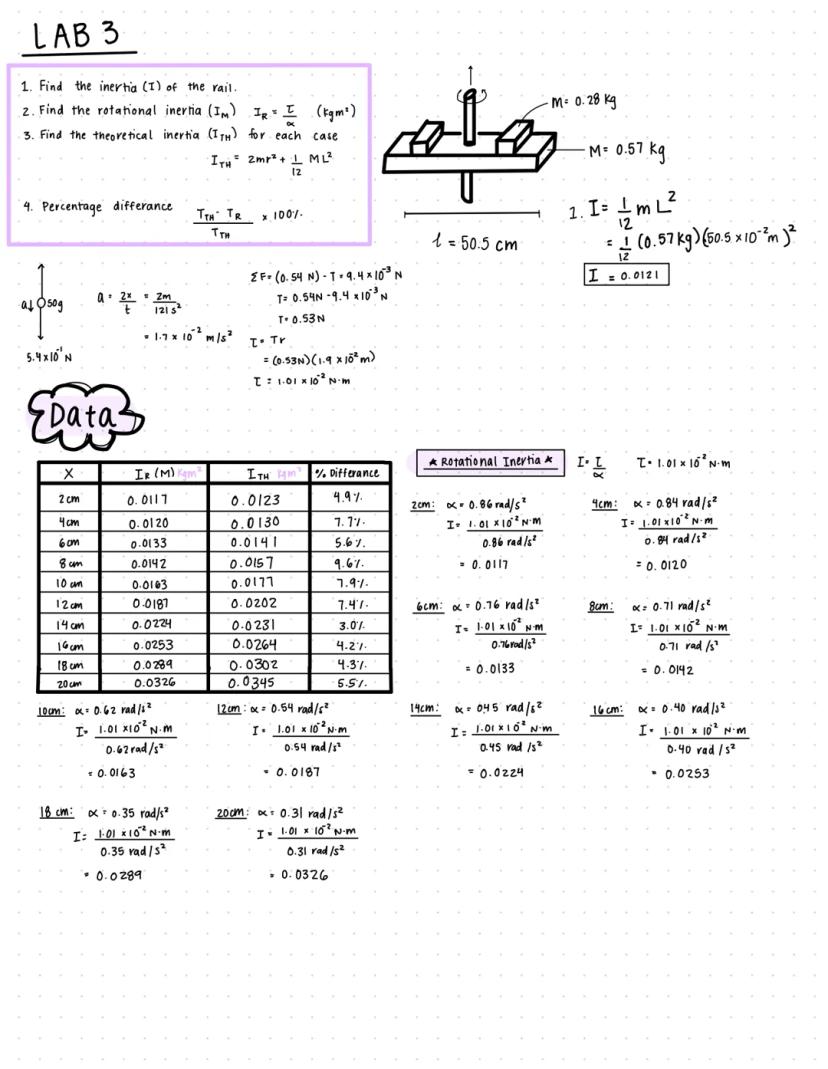 LAB 3
1. Find the inertia (I) of the rail.
2. Find the rotational inertia (I_M) I_R = τ/α (kgm²)
3. Find the theoretical inertia (I_TH) for each case
I_TH = 2mr² + 1/12 ML²
4. Percentage differance (T_TH - T_R)/T_TH × 100%
M= 0.28 kg
M= 0.57 kg
l = 50.5 cm
1. I= 1/12 m L²
= 1/12 (0.57 kg)(50.5 ×10⁻² m)²
I = 0.0121
a↓ 50g
5.4 ×10⁻¹ N
a = 2x/t = 2m/121 s²
= 1.7 × 10⁻² m/s²
ΣF= (0.54 N) - T = 9.4 ×10⁻³ N
T= 0.54N - 9.4 ×10⁻³ N
T= 0.53N
τ= Tr
= (0.53N)(1.9 ×10⁻² m)
τ = 1.01 ×10⁻² N·m
Data
X I_R (M) kgm² I_TH kgm² % Differance
2cm 0.0117 0.0123 4.9%
4cm 0.0120 0.0130 7.7%
6cm 0.0133 0.0141 5.6%
8cm 0.0142 0.0157 9.6%
10cm 0.0163 0.0177 7.9%
12cm 0.0187 0.0202 7.4%
14cm 0.0224 0.0231 3.0%
16cm 0.0253 0.0264 4.2%
18cm 0.0289 0.0302 4.3%
20cm 0.0326 0.0345 5.5%
★ Rotational Inertia ★ I= τ/α τ= 1.01 ×10⁻² N·m
2cm: α = 0.86 rad/s²
I= 1.01 ×10⁻² N·m
0.86 rad/s²
= 0.0117
4cm: α = 0.84 rad/s²
I= 1.01 ×10⁻² N·m
0.84 rad/s²
= 0.0120
6cm: α = 0.76 rad/s²
I= 1.01 ×10⁻² N·m
0.76 rad/s²
= 0.0133
8cm: α = 0.71 rad/s²
I= 1.01 ×10⁻² N·m
0.71 rad/s²
= 0.0142
10cm: α = 0.62 rad/s²
I= 1.01 ×10⁻² N·m
0.62 rad/s²
= 0.0163
12cm: α = 0.54 rad/s²
I= 1.01 ×10⁻² N·m
0.54 rad/s²
= 0.0187
14cm: α = 045 rad/s²
I= 1.01 ×10⁻² N·m
0.45 rad/s²
= 0.0224
16cm: α = 0.40 rad/s²
I= 1.01 × 10⁻² N·m
0.40 rad/s²
= 0.0253
18 cm: α = 0.35 rad/s²
I= 1.01 ×10⁻² N·m
0.35 rad/s²
= 0.0289
20cm: α = 0.31 rad/s²
I= 1.01 × 10⁻² N·m
0.31 rad/s²
= 0.0326